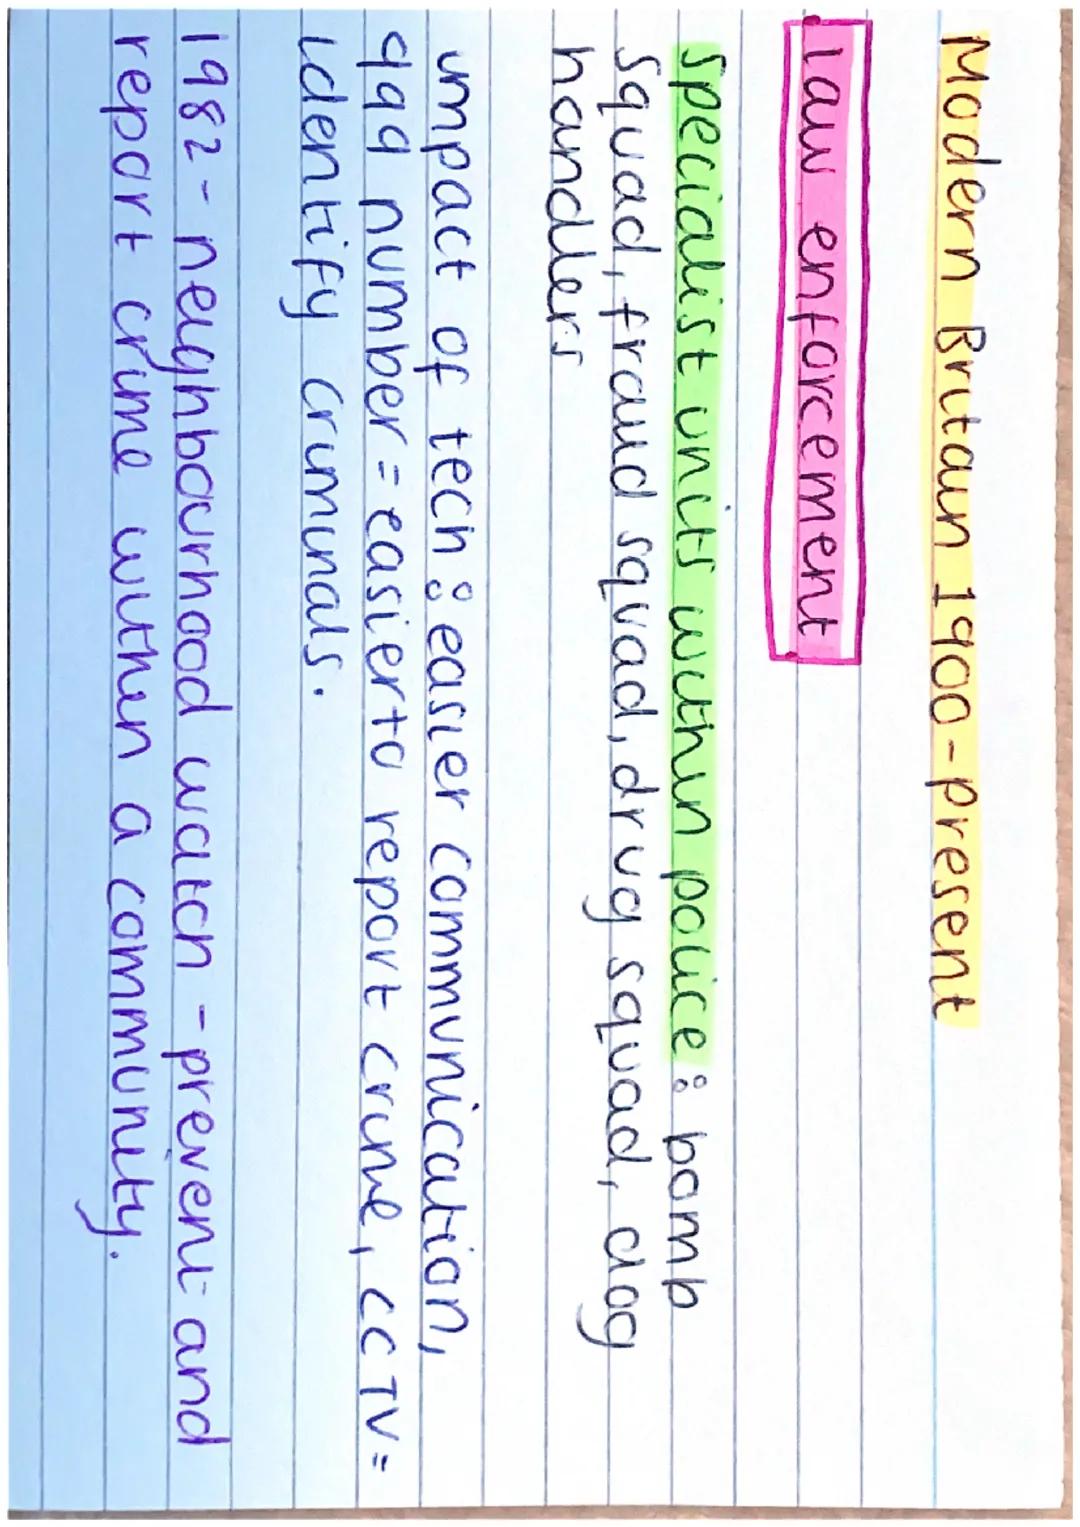 Modern Britain 1900-present
law enforcement
specialist units within police: bomb
squad, fraud squad, drug squad, dog
handlers
impact of tech: easier communication,
999 number = easier to report crime, CCTV =
identify criminals.
1982 - neighbourhood watch - prevent and
report crime within a community.